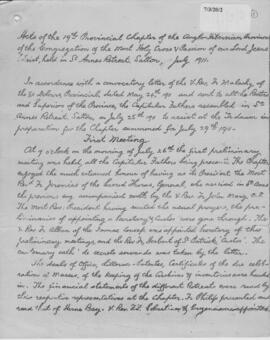 Acts of the 19th Provincial Chapter of the Anglo-Hibernian Province
of the Congregation of the Most Holy Cross & Passion of our Lord Jesus
Christ, held in St Anne's Retreat, Sutton, July 1911.
In accordance with a convocatory letter of the V. Rev. Fr Malachy, of
the Dolours, Provincial, dated May 26th and sent to all the Rectors
and Superiors of the Province, the Capitular Fathers assembled in St
Anne's Retreat Sutton on July 25th to assist at the Triduum in
preparation for the Chapter announced for July 29th 1911.
First Meeting.
At 9 o'clock on the morning of July 26th the first preliminary
meeting was held, all the Capitular Fathers being present. The Chapter
enjoyed the much esteemed honour of having as its President the Most
Rev. Fr Jeremias of the Thorns, General, who arrived in St Anne's
the previous day accompanied by the V. Rev. Fr John Mary,
The Most Rev. President having recited the usual prayers, the
preliminaries of appointing a Secretary & were gone through. The
V. Rev. Fr of the was appointed Secretary of this
preliminary meeting and the Rev. Fr Herbert of St Patrick, The
oath to secrets was taken by the
The deeds of Office, Patentes, Certificates of the due
celebration of Masses, of the keeping of the Archives & inventories were handed
in. The financial statements of the different Retreats were read by
the respective representatives at the Chapter. Fr Philip presented and
read of Herne Bay. V. Rev. Fr were appointed